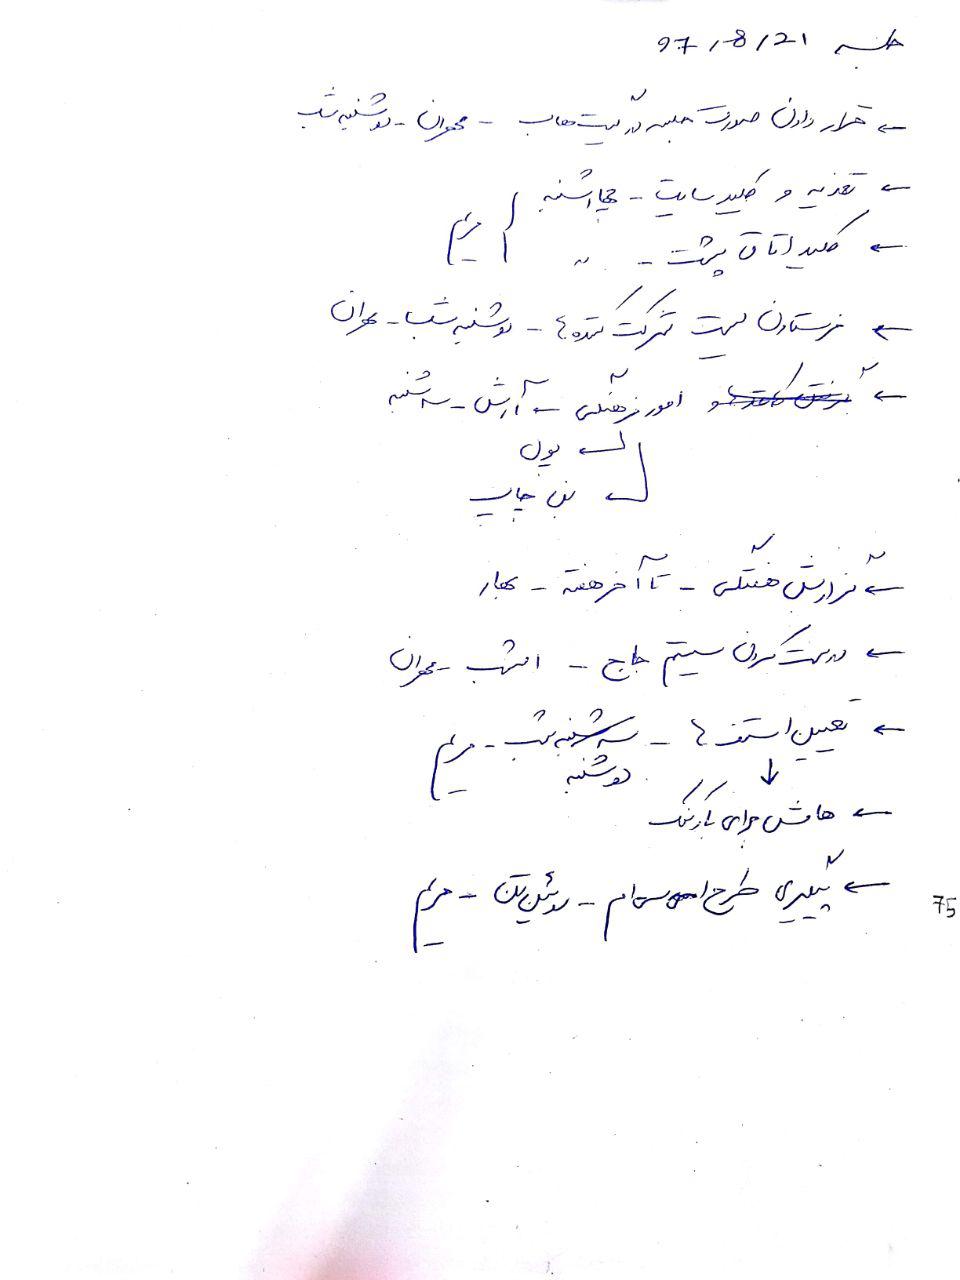 جلسه 97/8/21
← قرار دادن صورت جلسه در گیت هاب - مهران - دوشنبه شب
← تغذیه و کلید سایت - چهارشنبه
← کلید اتاق پشت - " مریم
← فرستادن لیست شرکت کننده ها - دوشنبه شب - مهران
← گرفتن کاغذها و امور فرهنگی ← آرش - سه شنبه
← پول
← بن چاپ
← گزارش هفتگی - تا آخر هفته - بهار
← درست کردن سیستم جاج - امشب - مهران
← تعیین استف ها - سه شنبه شب - مریم
دوشنبه
↓
← هامش برای پارکینگ
← پیگیری طرح اس ام اس - روئین تن - مریم
75